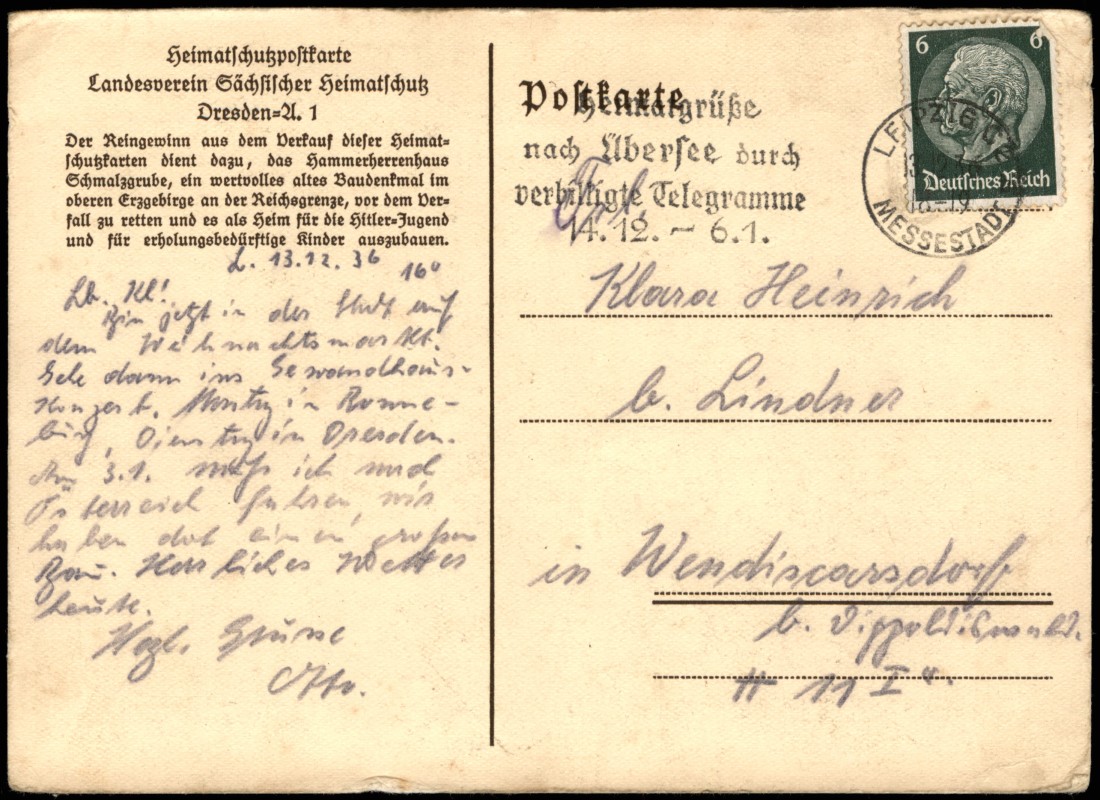 Heimatschutzpostkarte
Landesverein Sächsischer Heimatschutz
Dresden-A. 1
Der Reingewinn aus dem Verkauf dieser Heimat-
schutzkarten dient dazu, das Hammerherrenhaus
Schmalzgrube, ein wertvolles altes Baudenkmal im
oberen Erzgebirge an der Reichsgrenze, vor dem Ver-
fall zu retten und es als Heim für die Hitler-Jugend
und für erholungsbedürftige Kinder auszubauen.
L. 13.12.36 16⁰
Lb. Kl!
Bin jetzt in der Stadt auf
dem Weihnachtsmarkt.
Gehe dann ins Gewandhaus-
Konzert. Montag in Ronne-
burg, Dienstag in Dresden.
Am 3.1. muß ich nach
Österreich fahren, wir
haben dort einen großen
Bau. Herrliches Wetter
heute.
Herzl. Grüsse
Otto.
Postkarte
Heimatgrüße
nach Übersee durch
verbilligte Telegramme
14.12. - 6.1.
6 6
Deutsches Reich
LEIPZIG C 2
18-19
MESSESTADT
Frl.
Klara Heinrich
b. Lindner
in Wendiscarsdorf
b. Dippoldiswald.
# 11 I